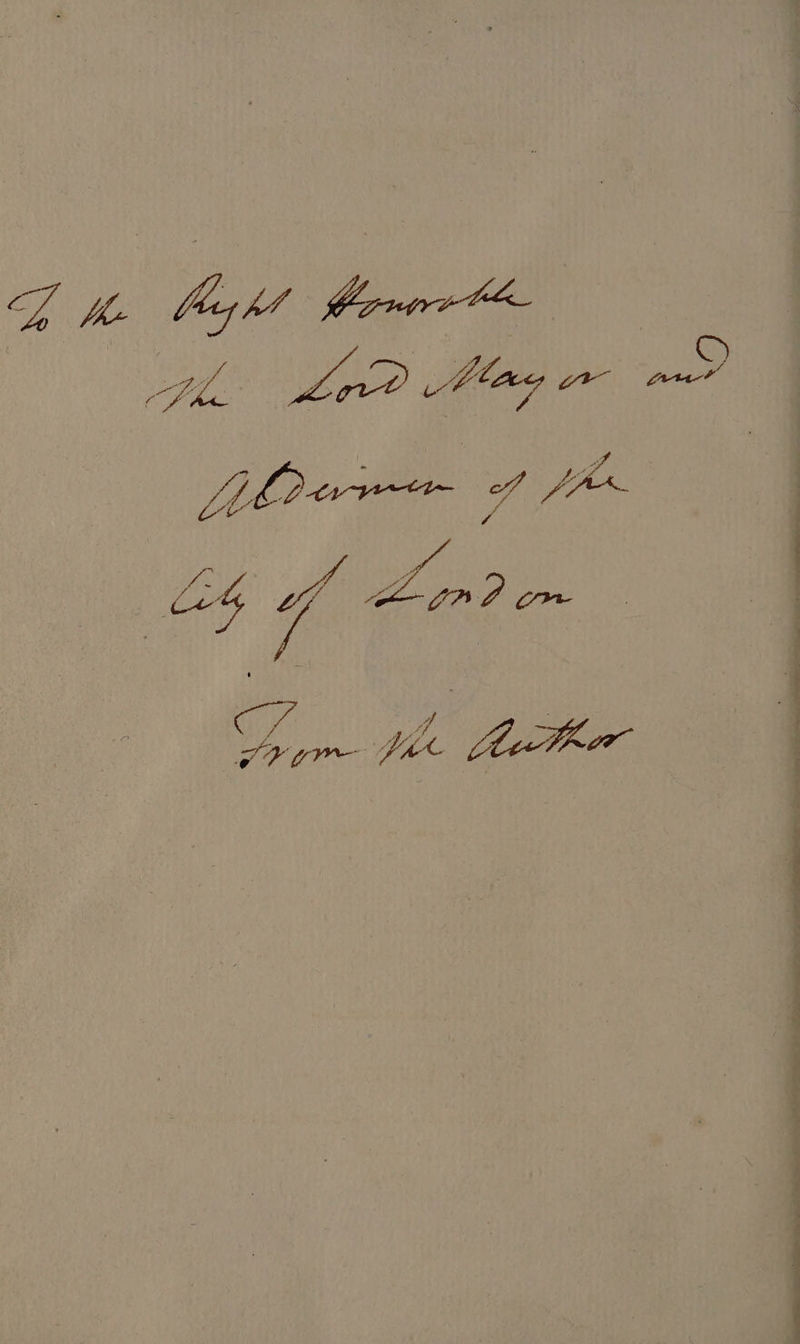 To the Right Honorable
The Lord Mayor and
Aldermen of the
City of London
From the Author